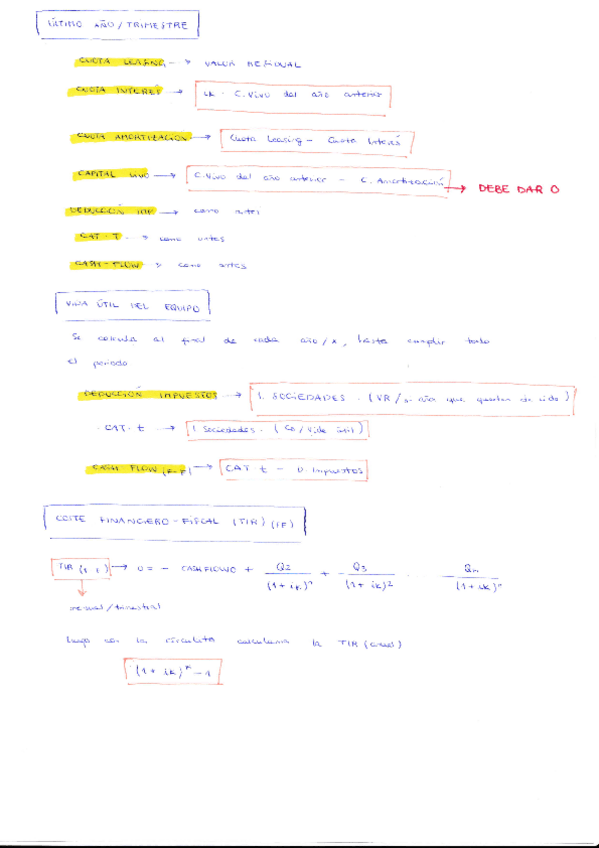 ÚLTIMO AÑO/TRIMESTRE
CUOTA LEASING → VALOR RESIDUAL
CUOTA INTERÉS → ik · C.Vivo del año anterior
CUOTA AMORTIZACION → Cuota Leasing - Cuota Interés
CAPITAL VIVO → C.Vivo del año anterior - C. Amortización → DEBE DAR 0
DEDUCCIÓN IMP → como antes
CAT · T → como antes
CASH-FLOW → como antes
VIDA ÚTIL DEL EQUIPO
Se calcula al final de cada año/k, hasta cumplir todo
el periodo
DEDUCCIÓN IMPUESTOS → I. SOCIEDADES · (VR/ año que quedan de vida)
· CAT · t → I Sociedades · (Co/Vida útil)
CASH FLOW (F-F) → CAT t - D. Impuestos
COSTE FINANCIERO-FISCAL (TIR) (IF)
TIR → 0 = - CASHFLOW0 + Q2/(1+ik)^n + -Q3/(1+ik)^2 - Qn/(1+ik)^n
anual/trimestral
luego con la calculamos la TIR (anual)
(1+ik)^k - 1